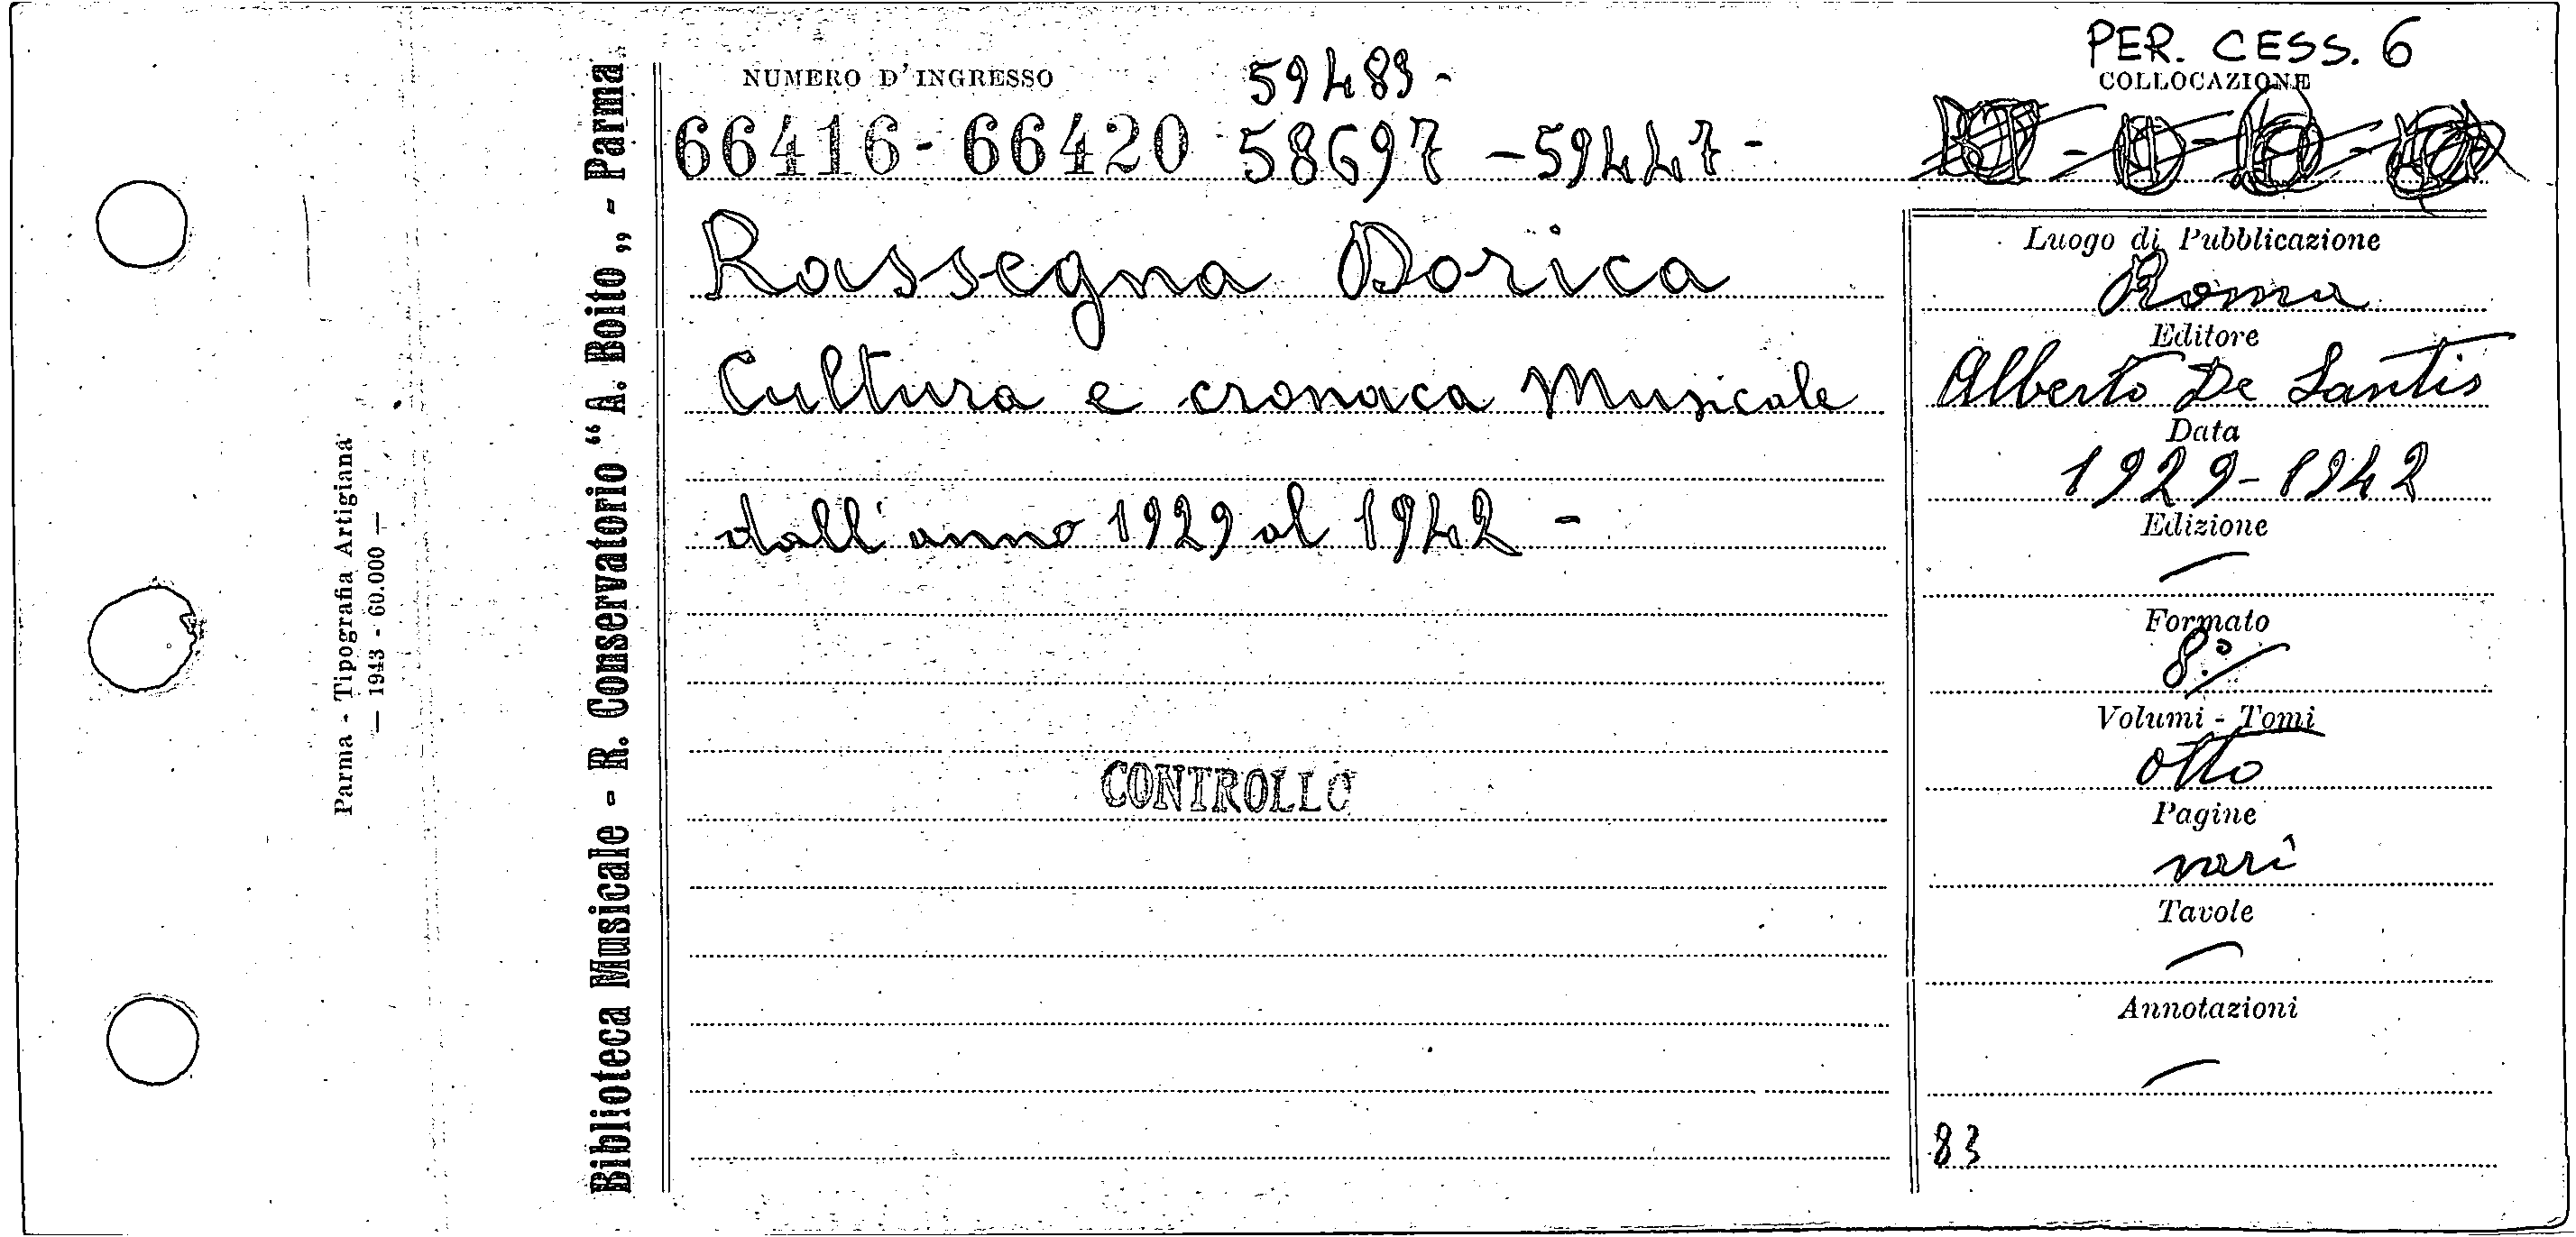 PER. CESS. 6
NUMERO D'INGRESSO 59489 - COLLOCAZIONE
66416 - 66420 58697 - 59447 -
Rassegna Dorica
Cultura e cronaca Musicale
dall'anno 1929 al 1942 -
CONTROLLO
Luogo di Pubblicazione
Roma
Editore
Alberto De Santis
Data
1929-1942
Edizione
Formato
8.°
Volumi - Tomi
otto
Pagine
varî
Tavole
Annotazioni
83
Biblioteca Musicale - R. Conservatorio “A. Boito„ - Parma
Parma - Tipografia Artigiana
— 1943 - 60.000 —